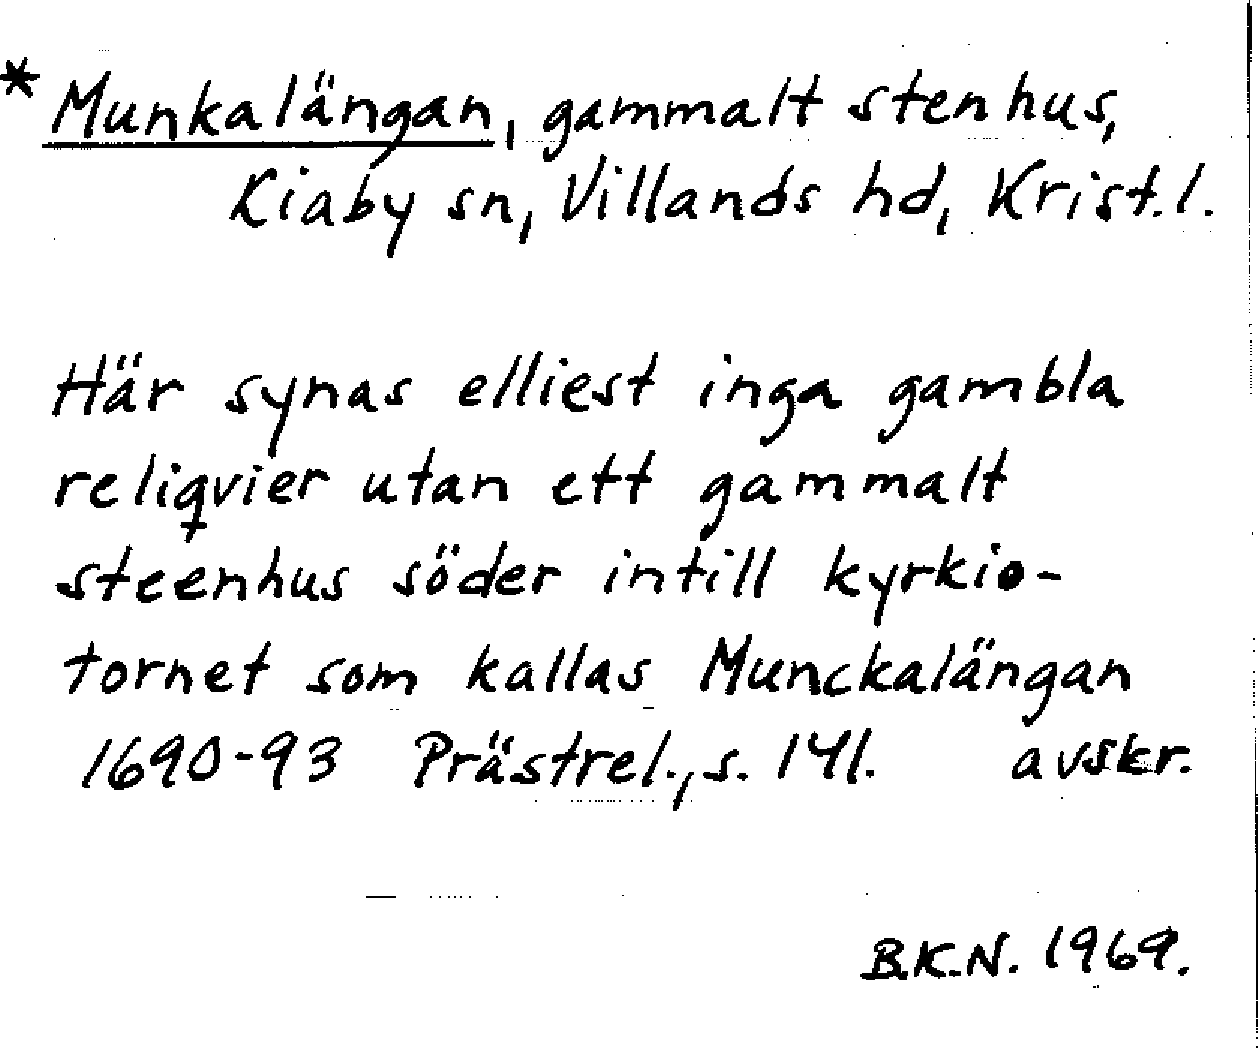 * Munkalängan, gammalt stenhus,
Kiaby sn, Villands hd, Krist. l.
Här synas elliest inga gambla
reliqvier utan ett gammalt
steenhus söder intill kyrkio-
tornet som kallas Munckalängan
1690-93 Prästrel., s. 141. avskr.
B.K.N. 1969.